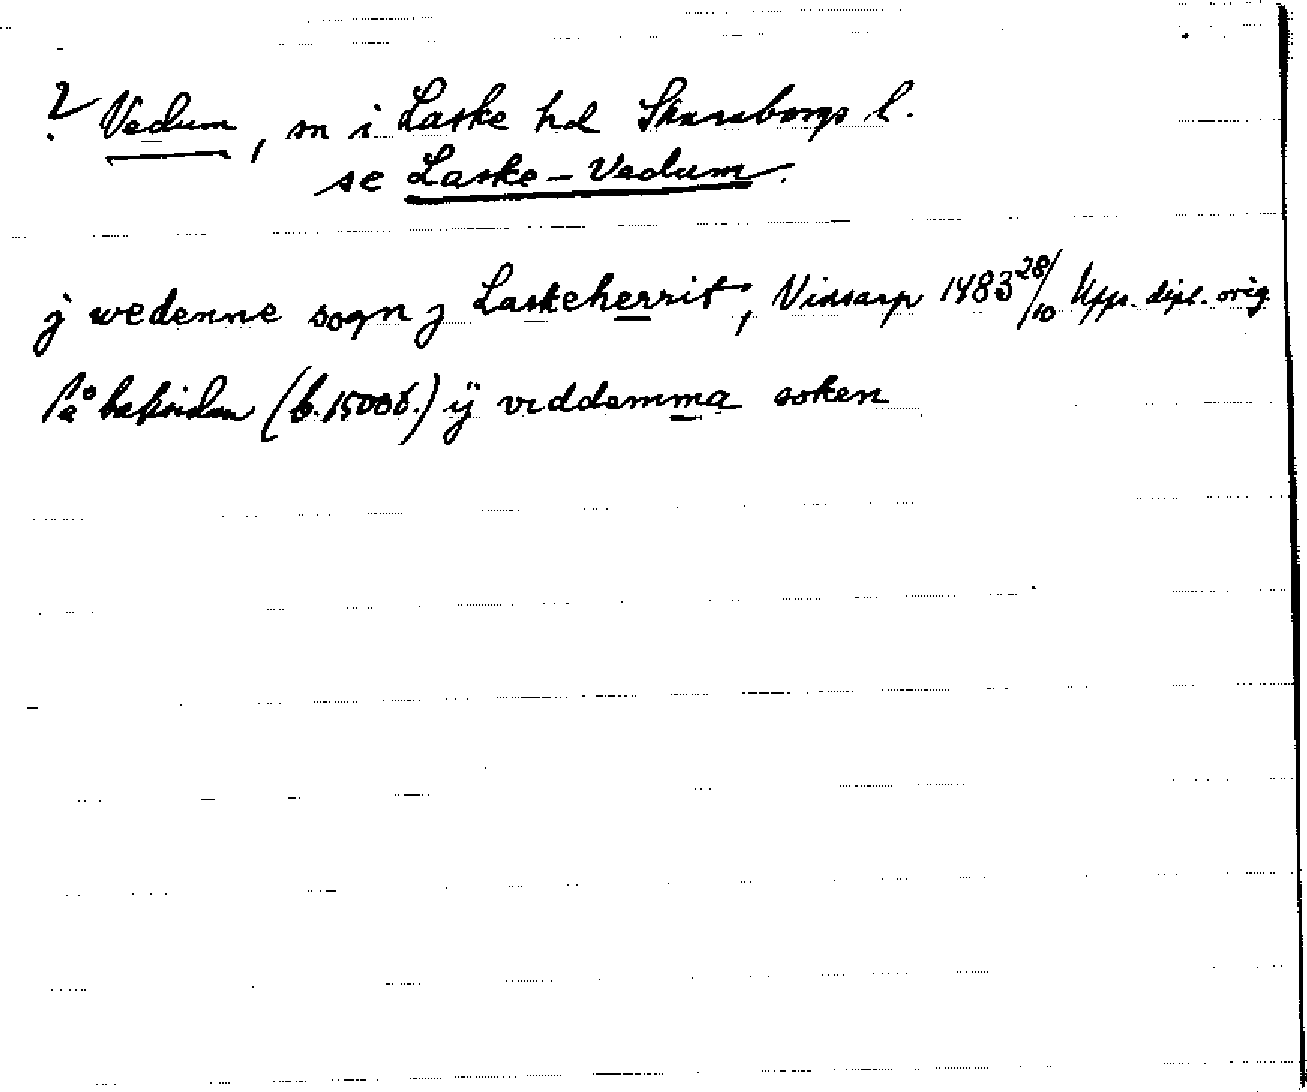 ? Vedum, sn i Laske hd Skaraborgs l.
se Laske-Vedum.
j wedenne sogn j Laskeherrit, Vinsarp 1483 28/10 Upps. dipl. orig.
På baksidan (b. 1500t.) ij veddemma soken